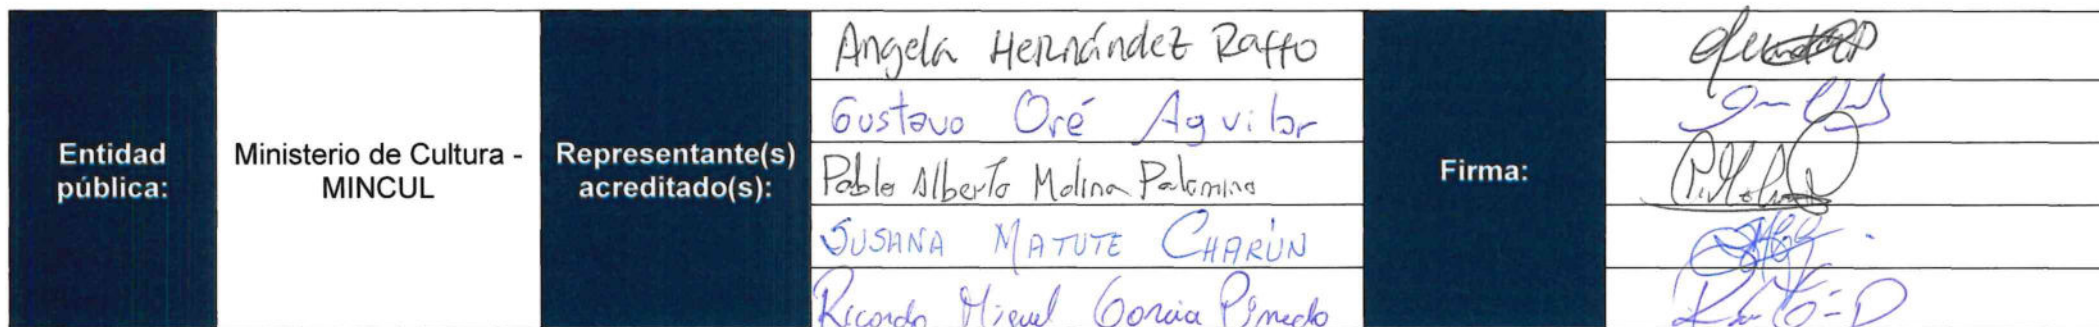 Entidad pública:
Ministerio de Cultura - MINCUL
Representante(s) acreditado(s):
Angela Hernández Raffo
Gustavo Oré Aguilar
Pablo Alberto Molina Palomino
SUSANA MATUTE CHARÚN
Ricardo Miguel Garcia Pinedo
Firma: